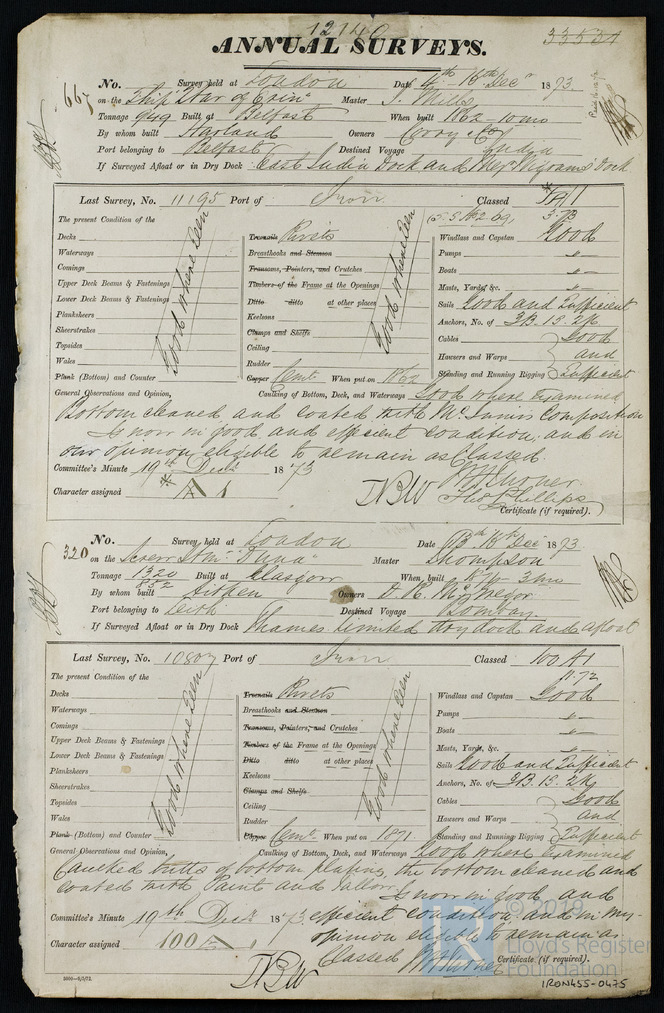 12140
33534
ANNUAL SURVEYS.
No. Survey held at London Date 4th 16th Decr 1873
667 on the Ship "Star of Erin" Master J. Mills
Tonnage 949 Built at Belfast When built 1862 - 10mo
By whom built Harland Owners Corry & Co
Port belonging to Belfast Destined Voyage India
If Surveyed Afloat or in Dry Dock East India Dock and Messrs Wigrams Dock
Last Survey, No. 11195 Port of Iron Classed A 1
The present Condition of the (S.S. No 2. 69) 3.73
Decks Treenails Rivets Windlass and Capstan Good
Waterways Breasthooks and Stemson Pumps "
Comings Transoms, Pointers, and Crutches Boats "
Upper Deck Beams & Fastenings Timbers of the Frame at the Openings Masts, Yards, &c. "
Lower Deck Beams & Fastenings Ditto ditto at other places Sails Good and Sufficient
Planksheers Keelsons Anchors, No. of 3B. 1S. 2K
Sheerstrakes Clamps and Shelfs Cables Good
Topsides Ceiling Hawsers and Warps and
Wales Rudder Standing and Running Rigging Sufficient
Good where seen
Good where seen
Plank (Bottom) and Counter Copper Cemt. When put on 1862
General Observations and Opinion, Caulking of Bottom, Deck, and Waterways Good where examined
Bottom cleaned and coated with McInnis Composition
Is now in good and efficient condition, and in
our opinion eligible to remain as Classed.
Committee's Minute 19th Decr 1873
Character assigned A 1
Thos Phillips
Certificate (if required).
No. Survey held at London Date 13th 18th Decr 1873
320 on the Screw Stmr "Duna" Master Thompson
Tonnage 1320 Built at Glasgow When built 3mo
852
By whom built Aitken Owners D. R. McGregor
Port belonging to Leith Destined Voyage Bombay
If Surveyed Afloat or in Dry Dock Thames Limited dry dock and afloat
Last Survey, No. 10807 Port of Iron Classed 100 A1
The present Condition of the 11.72
Decks Treenails Rivets Windlass and Capstan Good
Waterways Breasthooks and Stemson Pumps "
Comings Transoms, Pointers, and Crutches Boats "
Upper Deck Beams & Fastenings Timbers of the Frame at the Openings Masts, Yards, &c. "
Lower Deck Beams & Fastenings Ditto ditto at other places Sails Good and Sufficient
Planksheers Keelsons Anchors, No. of 3B. 1S. 2K
Sheerstrakes Clamps and Shelfs Cables Good
Topsides Ceiling Hawsers and Warps and
Wales Rudder Standing and Running Rigging Sufficient
Good where seen
Good where seen
Plank (Bottom) and Counter Copper Cemt. When put on 1871
General Observations and Opinion, Caulking of Bottom, Deck, and Waterways Good where Examined
Caulked butts of bottom plating, the bottom cleaned and
coated with Paint and Tallow. Is now in good and
Committee's Minute 19th Decr 1873 efficient condition, and in my
opinion eligible to remain as
Character assigned 100 A 1
Classed
Certificate (if required).
© 2019
Lloyd's Register
Foundation
IRON455-0475